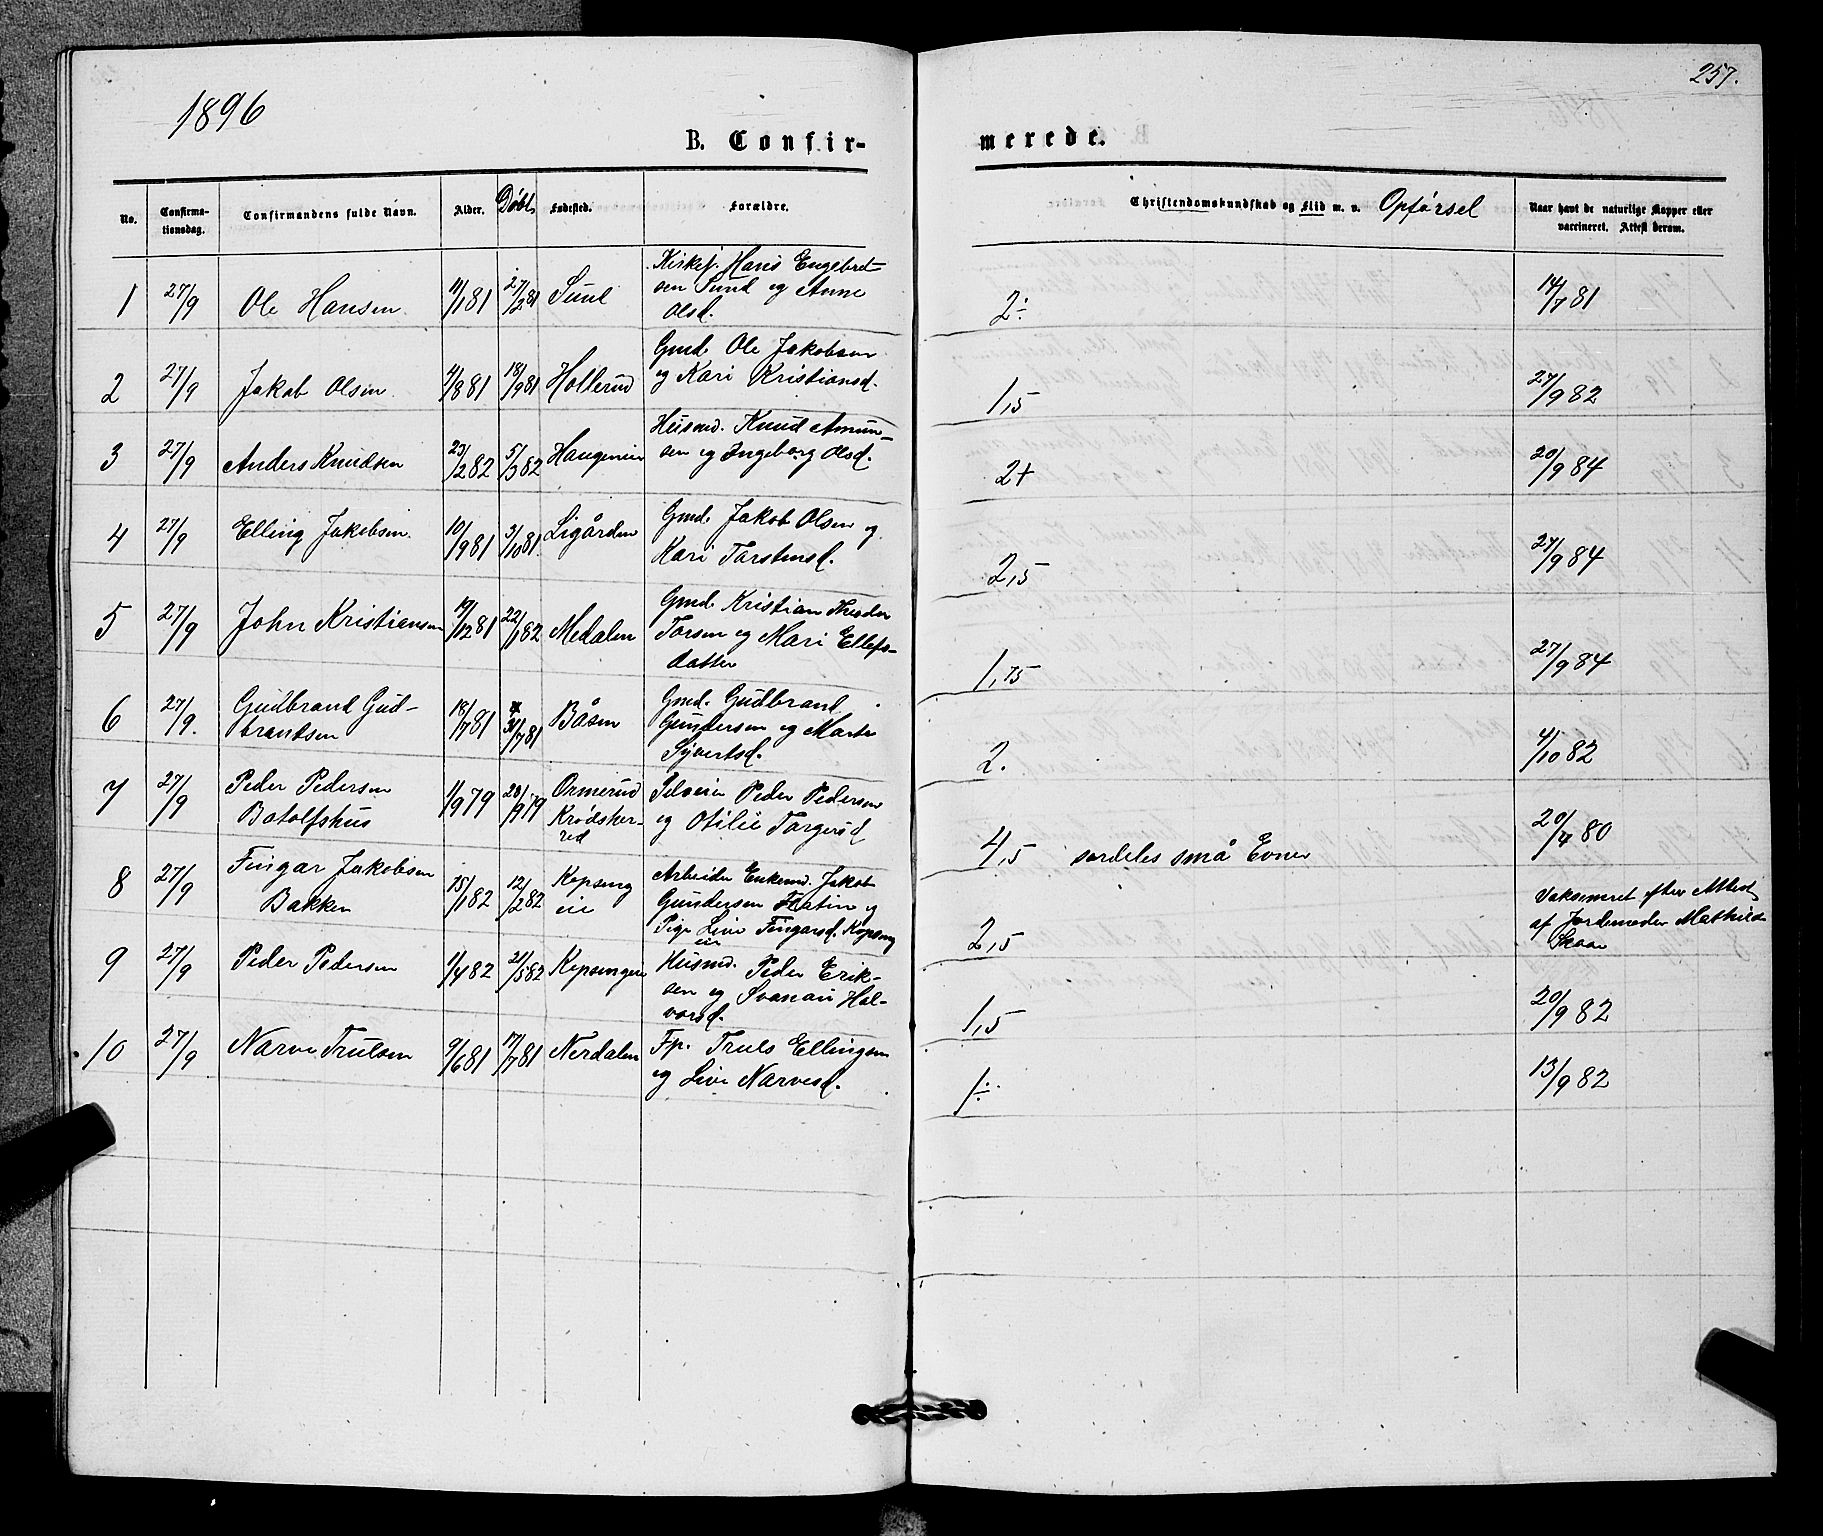 1896
257.
B. Confir-
merede.
No.
Confirma-
tionsdag.
Confirmandens fulde Navn.
Alder.
Døbt
Fødested.
Forældre.
Christendomskundskab og Flid m. v. Opførsel
Naar havt de naturlige Kopper eller
vaccineret. Attest derom.
1 27/9 Ole Hansen 11/1 81 27/2 81
Kirkes. Hans Engebret-
sen Sund og Anne
Olsd.
2÷ 14/7 81
2 27/9 Jakob Olsen 4/8 81 18/9 81 Hollerud
Gmd. Ole Jakobsen
og Kari Kristiansd.
1,5 27/9 82
3 27/9 Anders Knudsen 23/2 82 5/3 82 Haugeneie
Husmd. Knud Amun-
sen og Ingeborg Olsd.
2+ 20/9 84
4 27/9 Elling Jakobsen 10/9 81 3/10 81 Ligården
Gmd. Jakob Olsen og
Kari Torstensd.
2,5 27/9 84
5 27/9 John Kristiansen 19/12 81 22/1 82 Medalen
Gmd. Kristian
Torsen og Mari Ellefs-
datter
1,75 27/9 84
6 27/9. Gudbrand Gud-
brandsen 18/7 81 31/7 81 Båsen
Gmd. Gudbrand
Gundersen og Marte
Syvertsd.
2. 4/10 82
7 27/9 Peder Pedersen
Botolfshus 1/9 79 28/9 79 Ormerud
Krødsher-
red
Peder Pedersen
og Otilie Torgersd
4,5 særdeles små Evner 20/7 80
8 27/9 Fingar Jakobsen
Bakken 15/1 82 12/2 82 Kopseng
eie
Arbeider Enkemd. Jakob
Gundersen Flatin og
Pige Live Fingarsd. Kopseng
eie
2,5 Vaksineret efter Attest
af Jordemoder Mathilde
Skaar
9 27/9 Peder Pedersen 1/4 82 21/5 82 Kopsengeie
Husmd. Peder Erik-
sen og Svanaui Hal-
vorsd.
1,5 20/9 82
10 27/9 Narve Trulsen 9/6 81 17/7 81 Nerdalen
Fp. Truls Ellingsen
og Live Narvesd.
1÷ 13/9 82